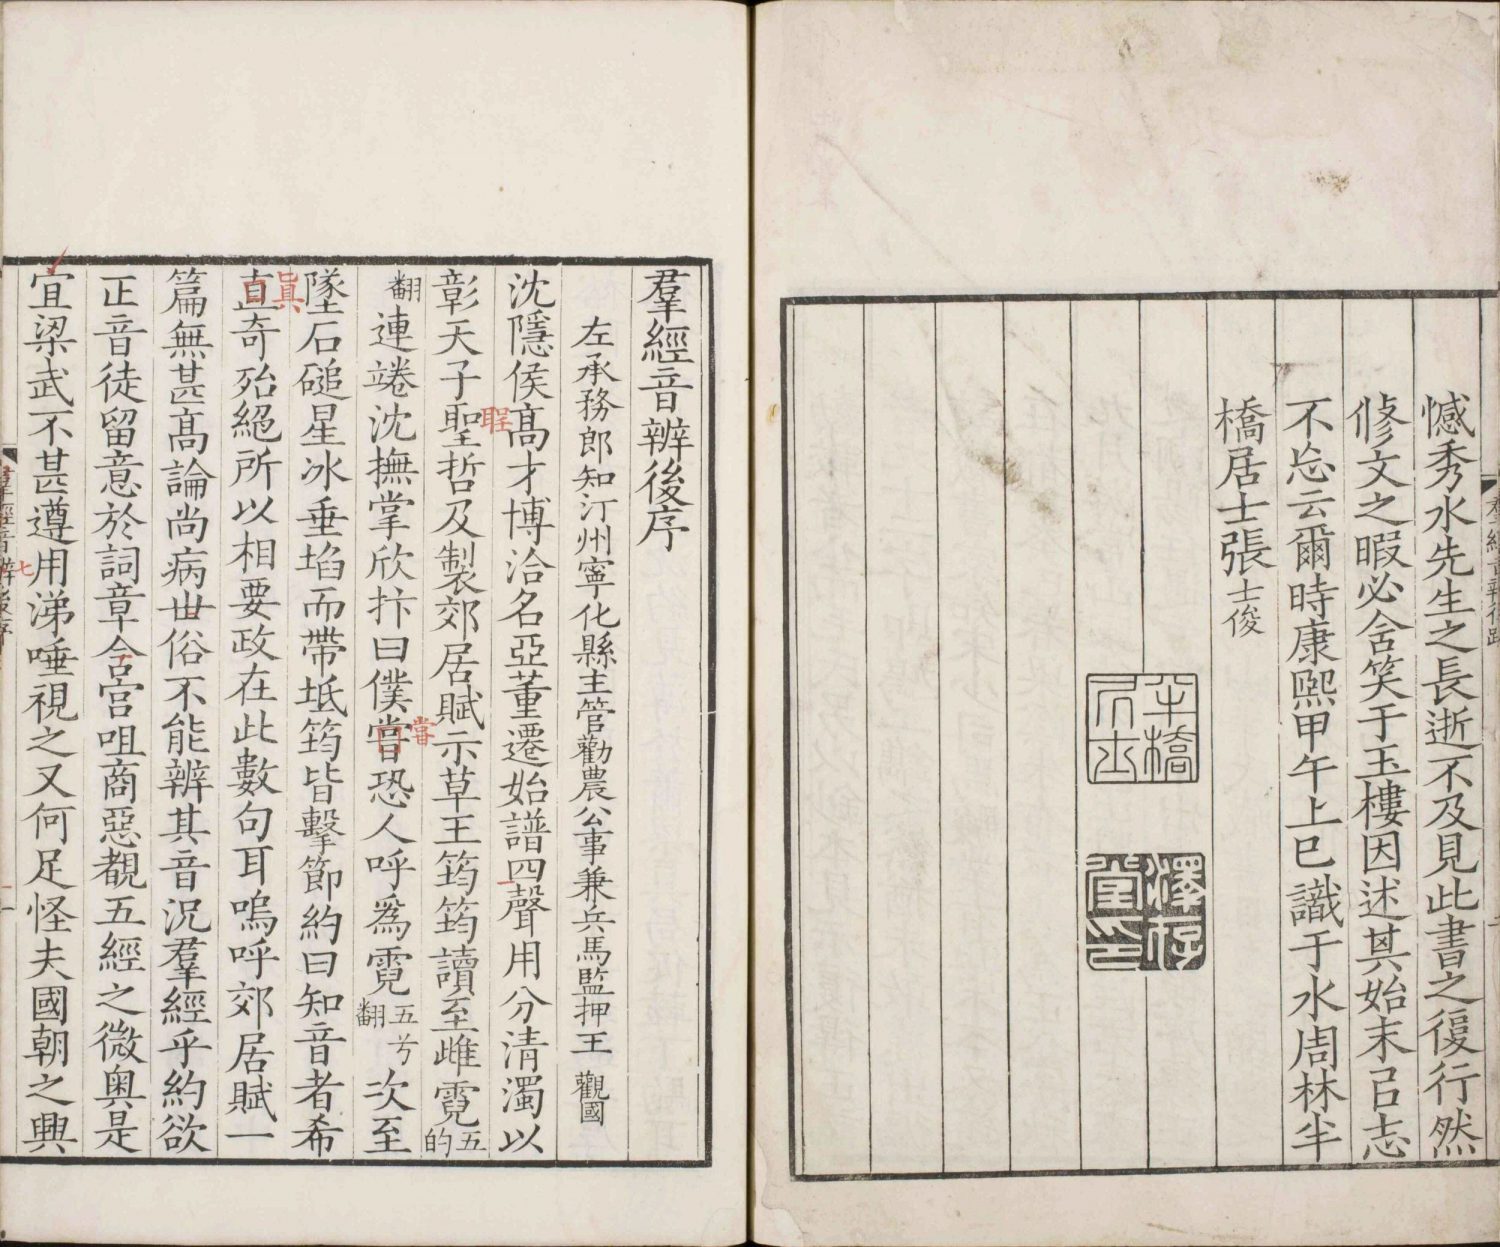 憾秀水先生之長逝不及見此書之復行然
修文之暇必含笑于玉樓因述其始末㠯志
不忘云爾時康熙甲午上巳識于水周林半
橋居士張士俊
半橋居士
澤存堂印
羣經音辨後序
左承務郎知汀州寧化縣主管勸農公事兼兵馬監押王觀國
沈隱侯高才博洽名亞董遷始譜四聲用分清濁以
彰天子聖哲及製郊居賦示草王筠筠讀至雌霓五的
翻連蜷沈撫掌欣抃曰僕嘗恐人呼為霓五兮翻次至
墜石磓星冰垂埳而帶坻筠皆擊節約曰知音者希
直奇殆絕所以相要政在此數句耳嗚呼郊居賦一
篇無甚高論尚病世俗不能辨其音況羣經乎約欲
正音徒留意於詞章含宮咀商惡覩五經之微奧是
宜梁武不甚遵用涕唾視之又何足怪夫國朝之興
羣經音辨後序
聖
嘗
真
七